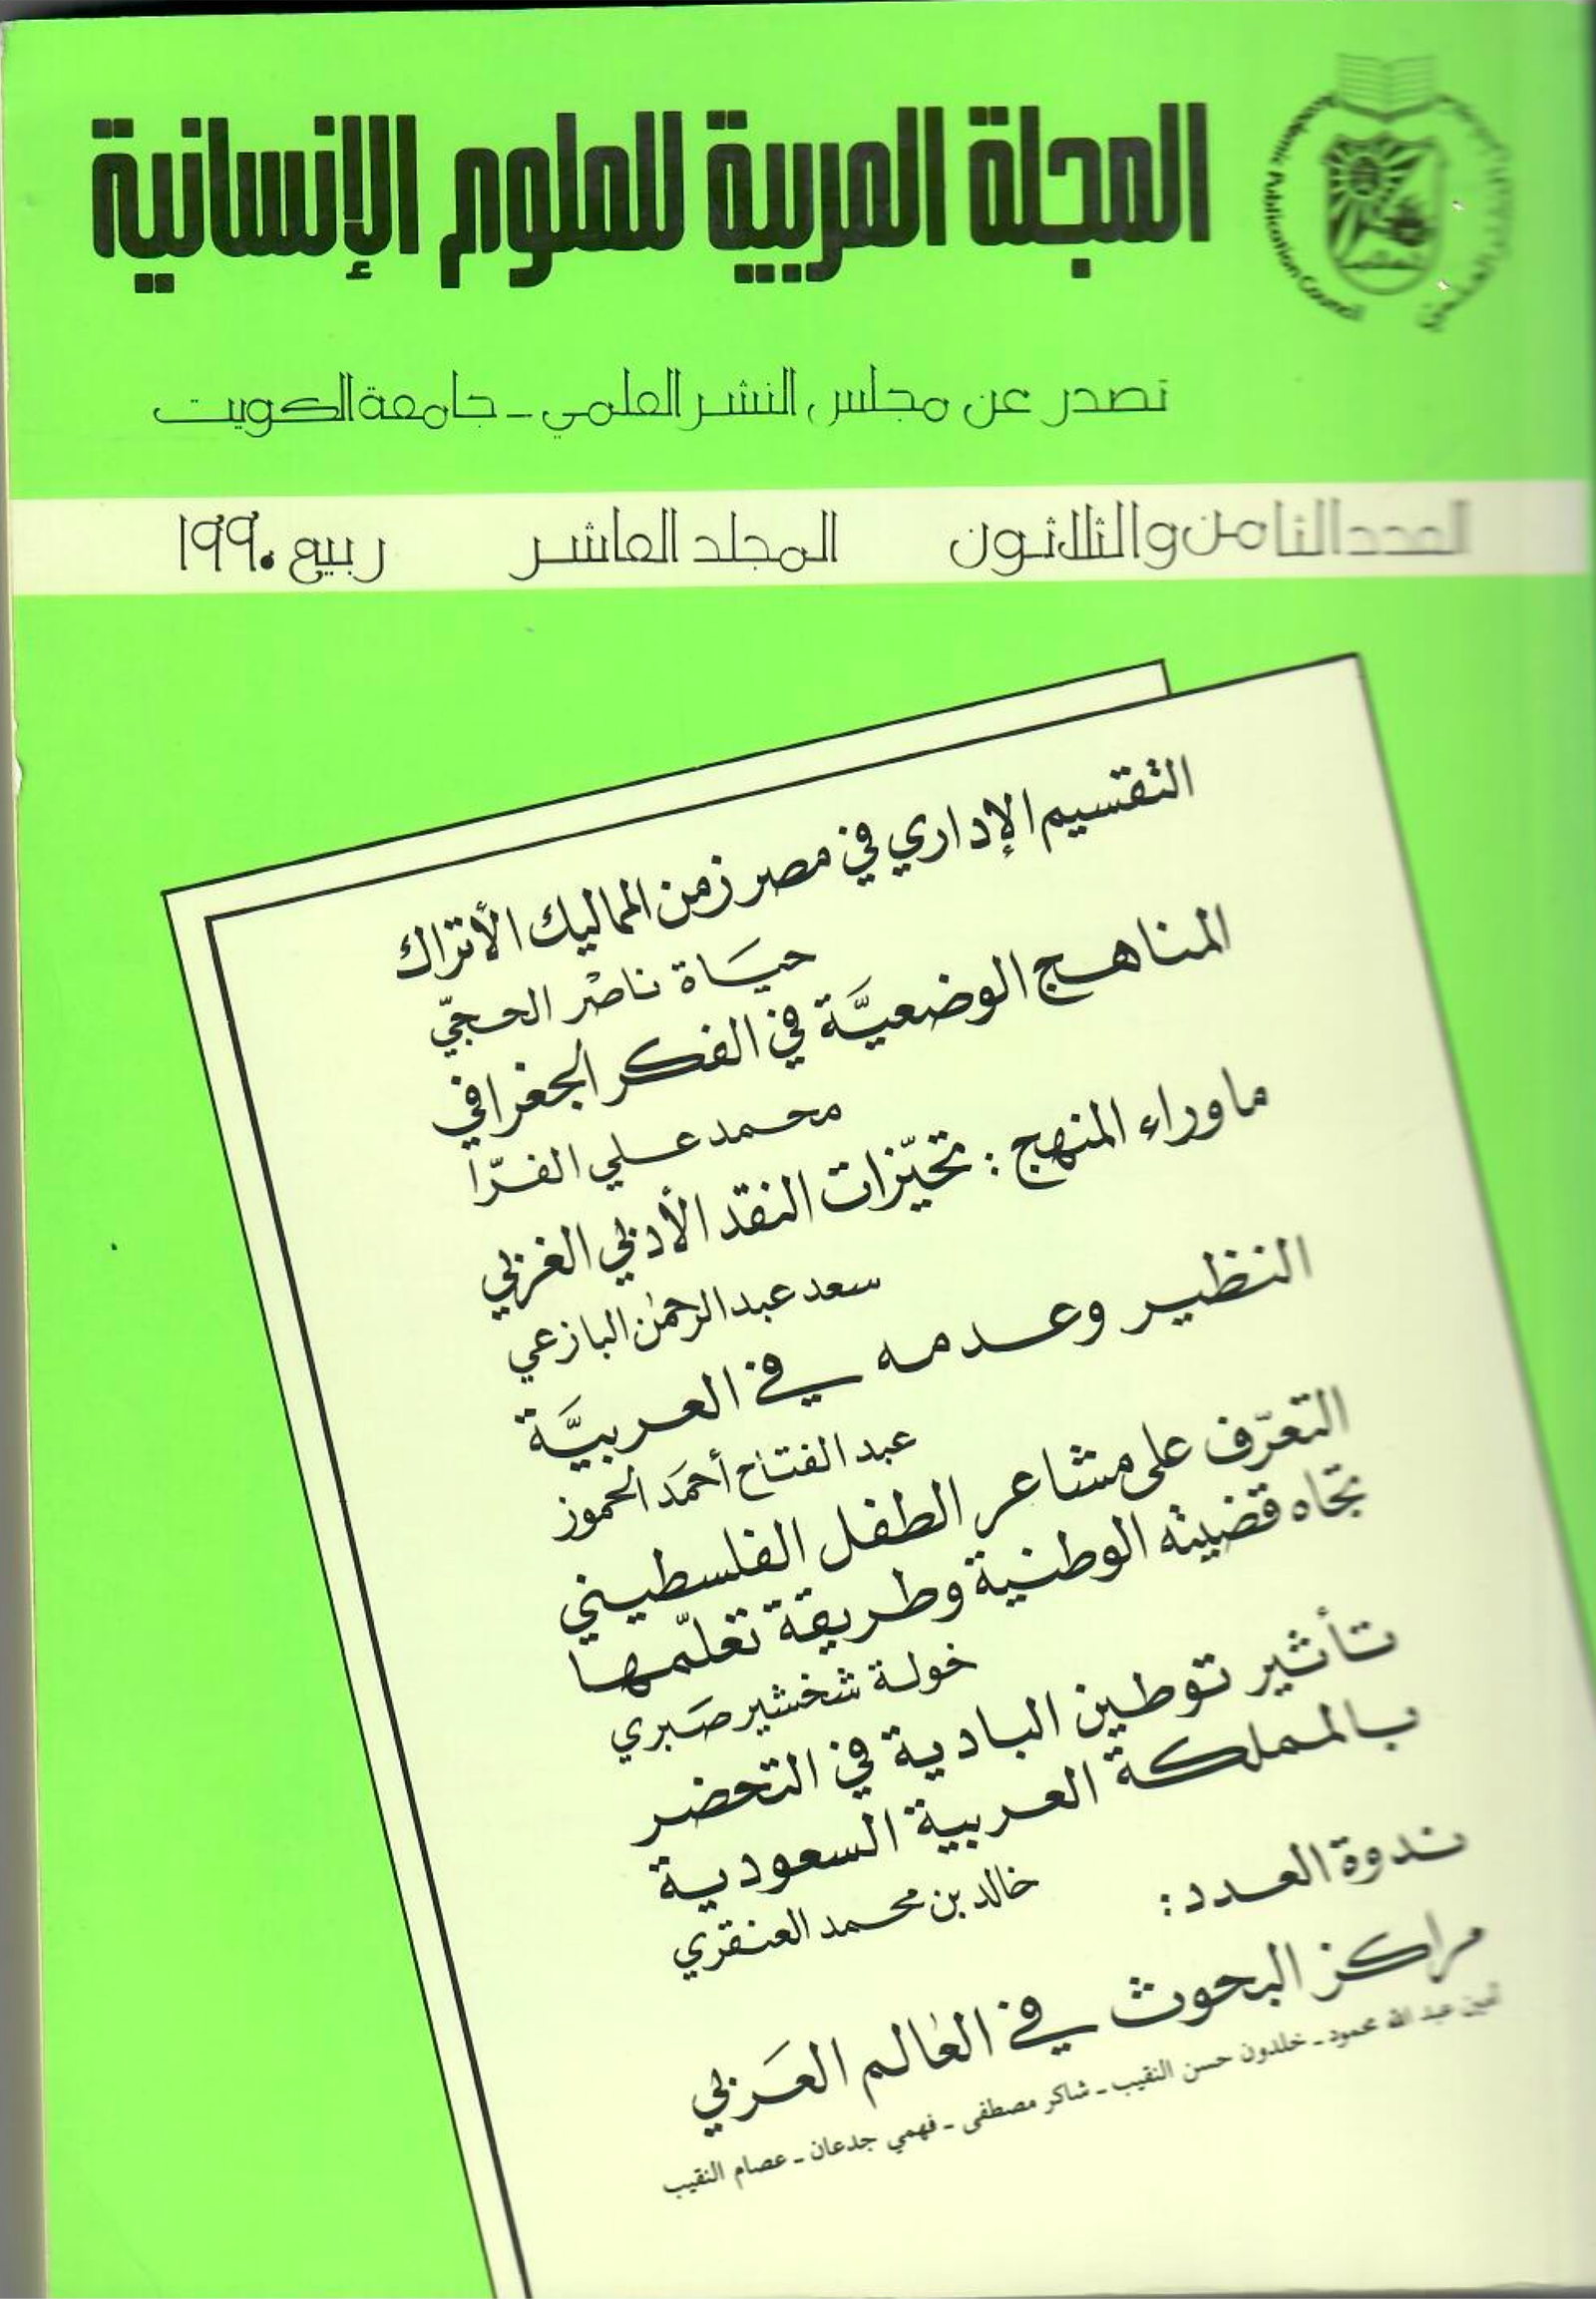 المجلة العربية للعلوم الإنسانية
Academic Publication Council
تصدر عن مجلس النشر العلمي - جامعة الكويت
العدد الثامن والثلاثون المجلد العاشر ربيع ١٩٩٠
التقسيم الإداري في مصر زمن المماليك الأتراك
حيَاة ناصْر الحجيّ
المناهج الوضعيَّة في الفكر الجغرافي
محمد علي الفرّا
ما وراء المنهج : تحيّزات النقد الأدبي الغربي
سعد عبد الرحمٰن البازعي
النظير وعدمه في العربيَّة
عبد الفتاح أحمَد الحموز
التعرّف على مشاعر الطفل الفلسطيني
تجاه قضيته الوطنية وطريقة تعلّمها
خولة شخشير صَبري
تأثير توطين البادية في التحضر
بالمملكة العربية السعودية
خالد بن محمد العنقري
ندوة العدد :
مراكز البحوث في العالم العَربي
أمين عبد الله محمود - خلدون حسن النقيب - شاكر مصطفى - فهمي جدعان - عصام النقيب